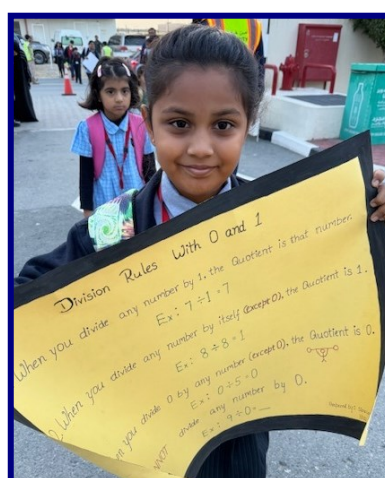 Division Rules With 0 and 1
When you divide any number by 1, the Quotient is that number.
Ex: 7 ÷ 1 = 7
When you divide any number by itself (except 0), the Quotient is 1.
Ex: 8 ÷ 8 = 1
you divide 0 by any number (except 0), the Quotient is 0.
Ex: 0 ÷ 5 = 0
divide any number by 0.
Ex: 9 ÷ 0 = __